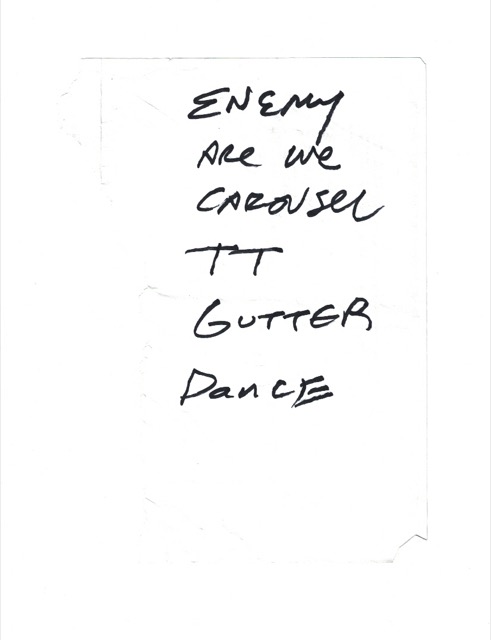 ENEMY
ARe we
CAROUSEL
TT
GUTTER
DanCE